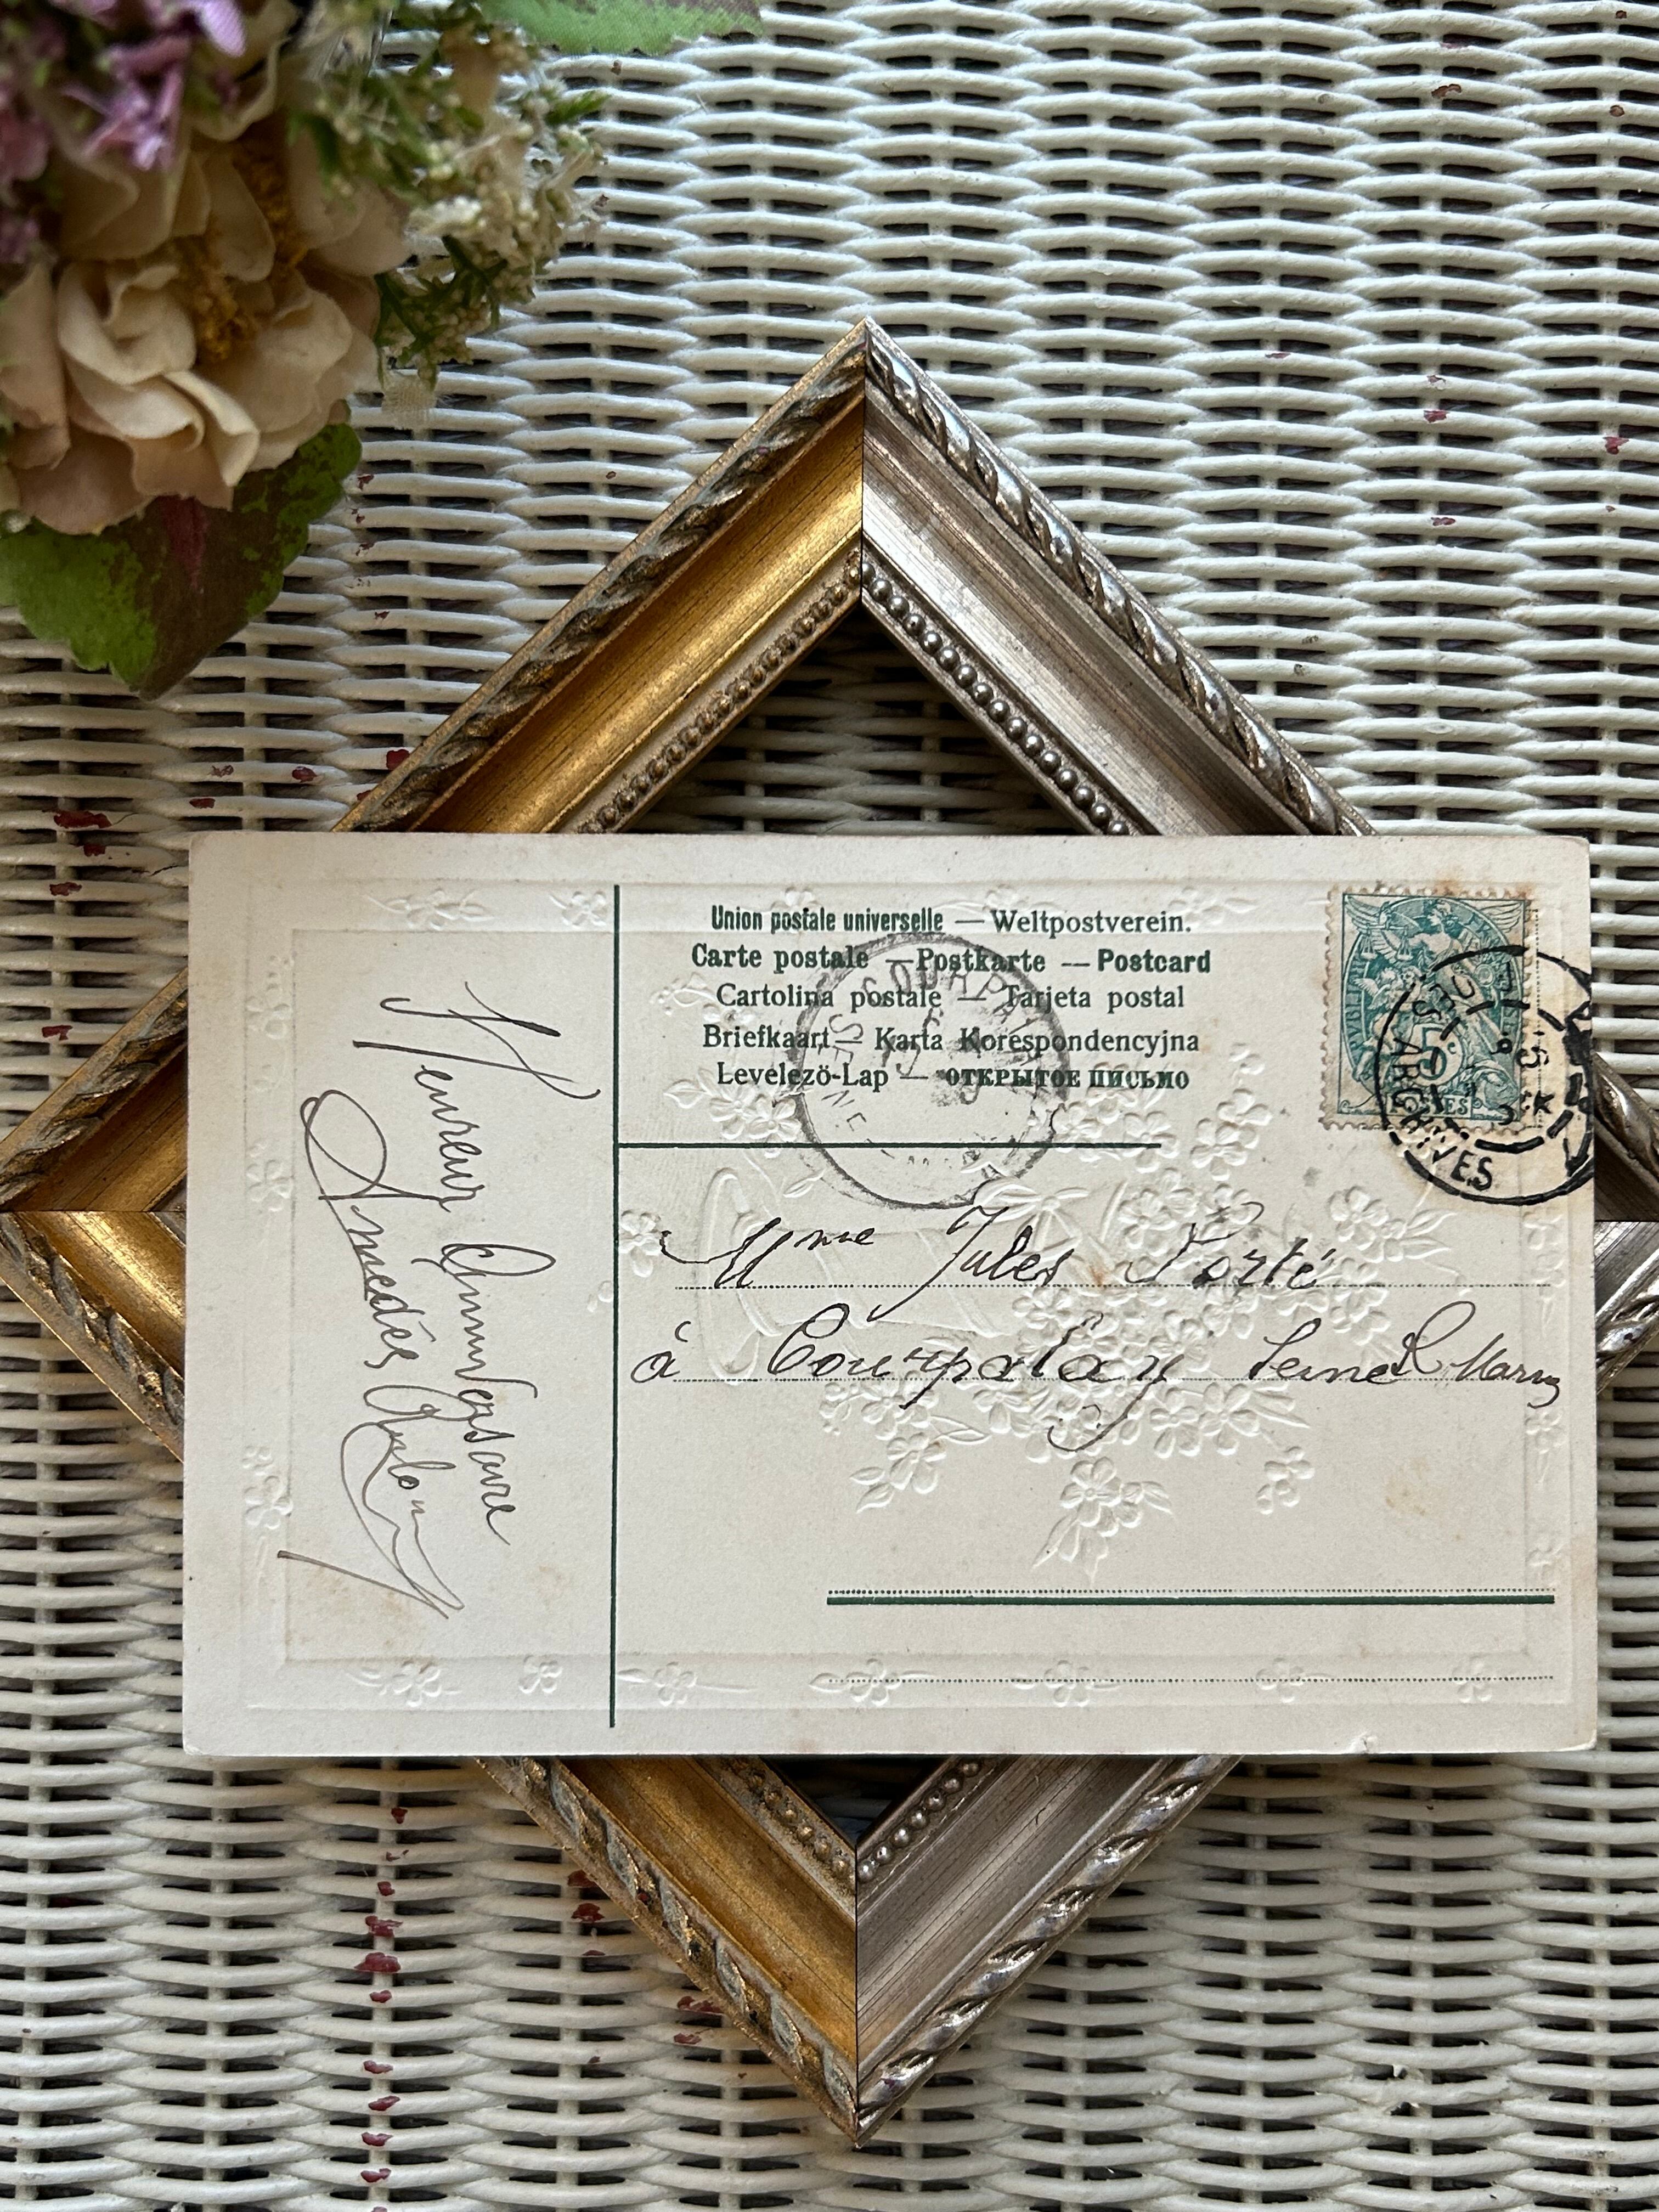 Union postale universelle — Weltpostverein.
Carte postale — Postkarte — Postcard
Cartolina postale — Tarjeta postal
Briefkaart — Karta Korespondencyjna
Levelezö-Lap — ОТКРЫТОЕ ПИСЬМО
Mme Jules Porté
à Courpalay Seine & Marne
Heureux Anniversaire
Amedés
ARCHIVES
5